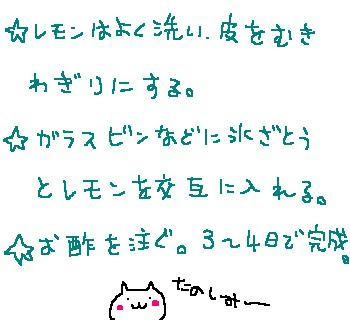 ☆レモンはよく洗い、皮をむき
わぎりにする。
☆ガラスビンなどに氷ざとう
とレモンを交互に入れる。
☆お酢を注ぐ。3～4日で完成。
たのしみー